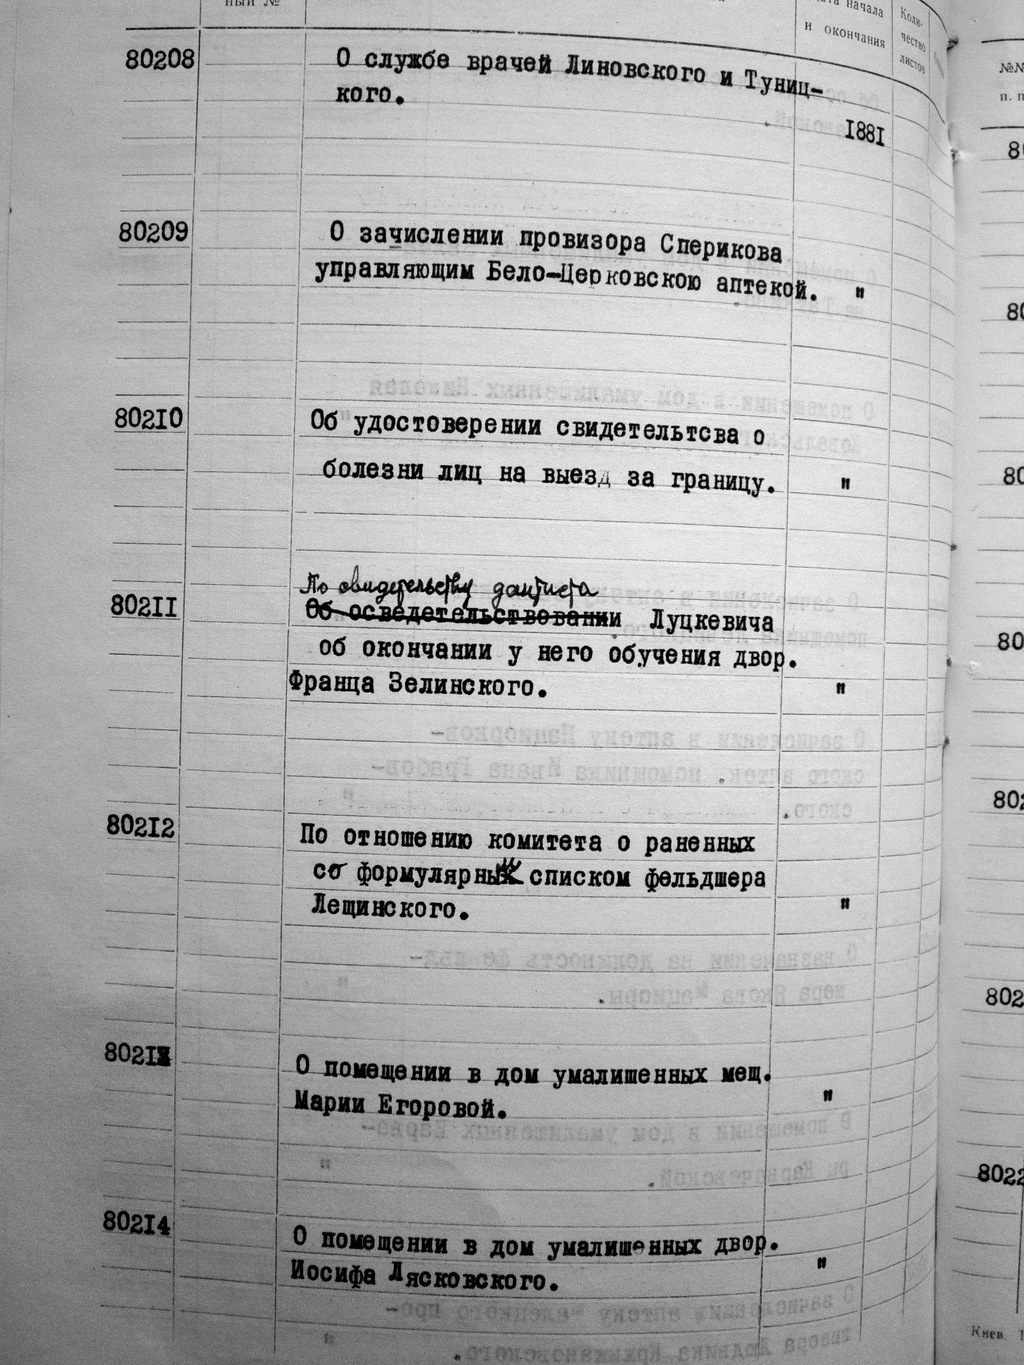 ный №
начала
и окончания
Коли-
чество
листов
№№
п. п
80208
О службе врачей Линовского и Туниц-
кого.
1881
80209
О зачислении провизора Сперикова
управляющим Бело-Церковскою аптекой. "
80210
Об удостоверении свидетельтсва о
болезни лиц на выезд за границу. "
По свидетельству дантиста
80211
Об осведетельствовании Луцкевича
об окончании у него обучения двор.
Франца Зелинского. "
80212
По отношению комитета о раненных
со формулярным списком фельдшера
Лещинского. "
80213
О помещении в дом умалишенных мещ.
Марии Егоровой. "
80214
О помещении в дом умалишенных двор.
Иосифа Лясковского. "
8
80
80
80
80
802
8022
Киев.